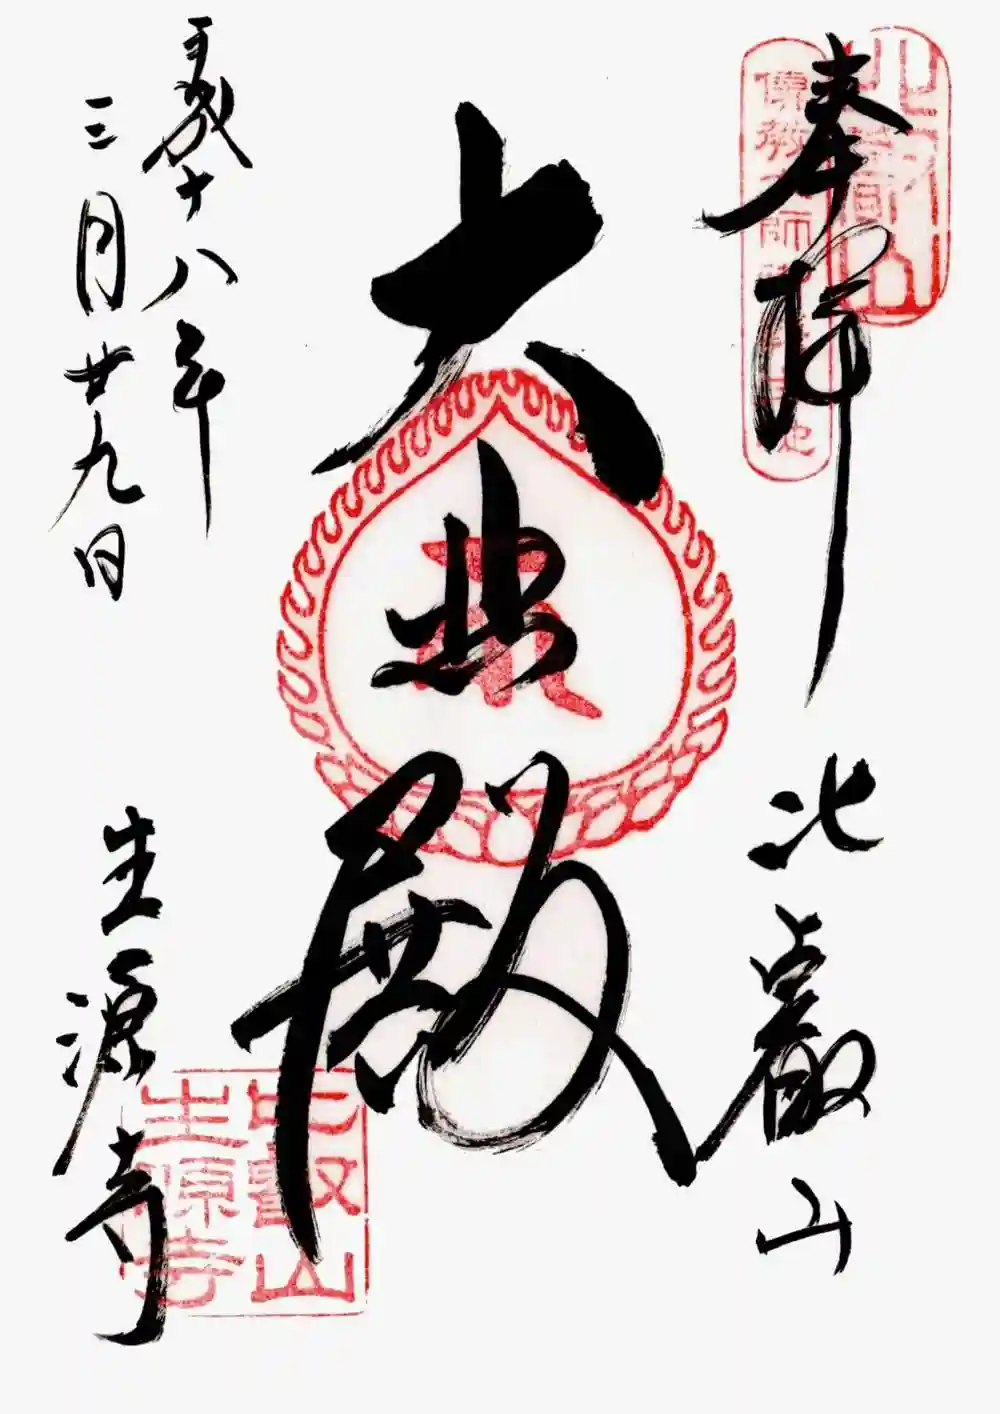 奉拝
比叡山
比叡山
傳教大師御誕生地
大悲殿
平成十八年
三月廿九日
生源寺
比叡山
生源寺